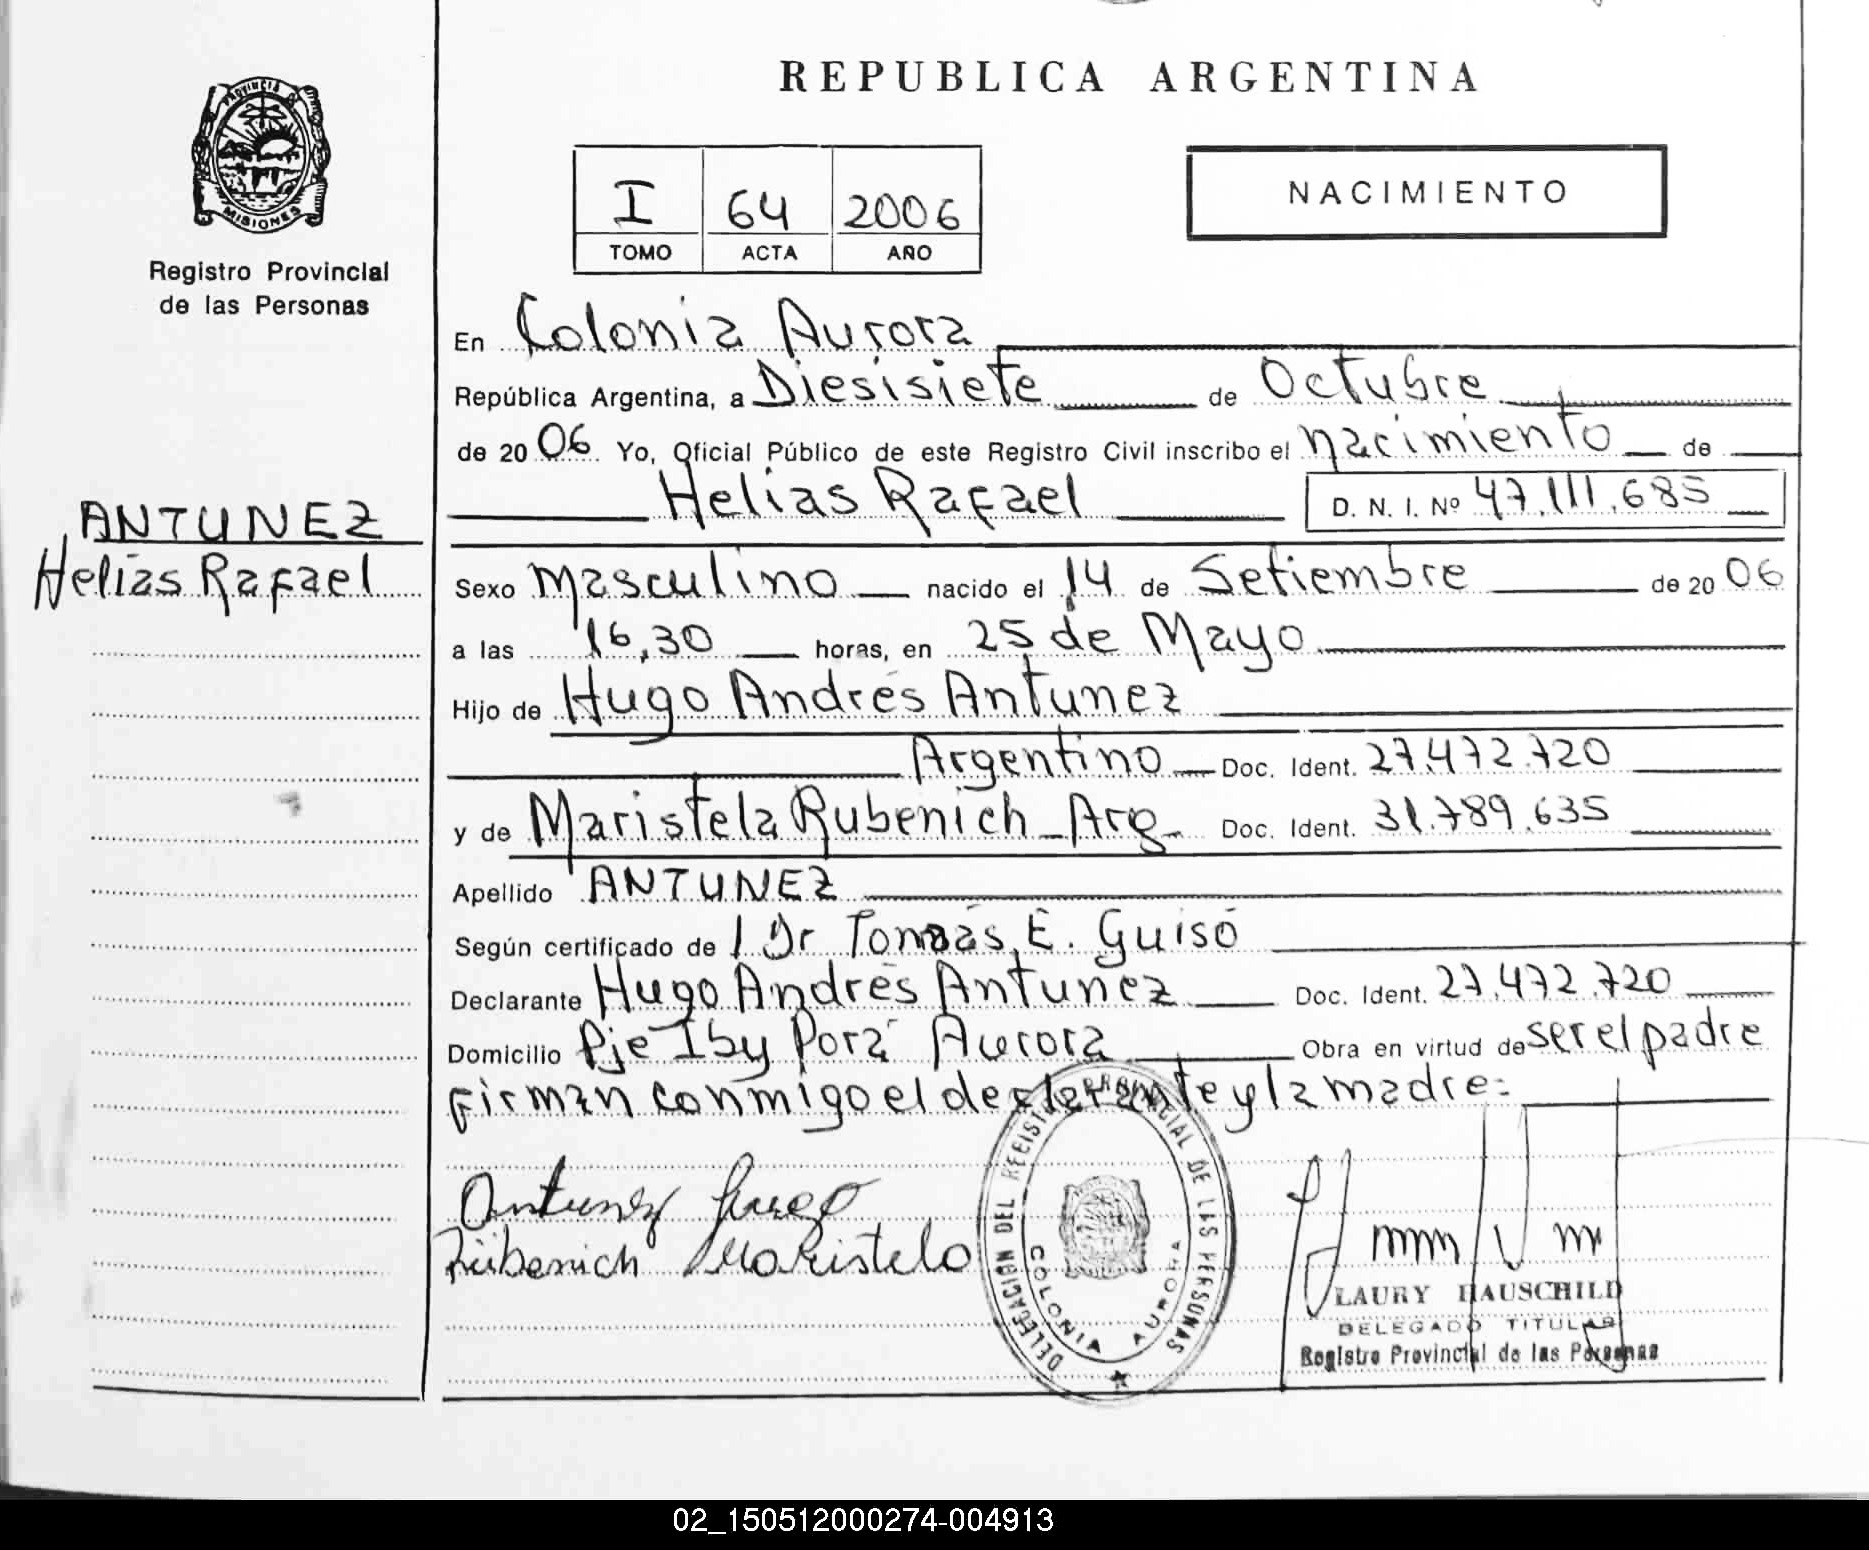 REPUBLICA ARGENTINA
PROVINCIA DE
MISIONES
Registro Provincial
de las Personas
I 64 2006
TOMO ACTA AÑO
NACIMIENTO
En Colonia Aurora
República Argentina, a Diesisiete de Octubre
de 20 06 Yo, Oficial Público de este Registro Civil inscribo el nacimiento de
Helias Rafael D. N. I. Nº 47.111.685
ANTUNEZ
Helias Rafael
Sexo Masculino nacido el 14 de Setiembre de 20 06
a las 16,30 horas, en 25 de Mayo
Hijo de Hugo Andrés Antunez
Argentino Doc. Ident. 27.472.720
y de Maristela Rubenich Arg. Doc. Ident. 31.789.635
Apellido ANTUNEZ
Según certificado de Dr Tomás E. Guisó
Declarante Hugo Andrés Antunez Doc. Ident. 27.472.720
Domicilio Pje Iby Porá Aurora Obra en virtud de ser el padre
Firman conmigo el declarante y la madre:
Antunez Hugo
Rübenich Maristela
DELEGACION DEL REGISTRO PROVINCIAL DE LAS PERSONAS
COLONIA AURORA
LAURY HAUSCHILD
DELEGADO TITULAR
Registro Provincial de las Personas
02_150512000274-004913